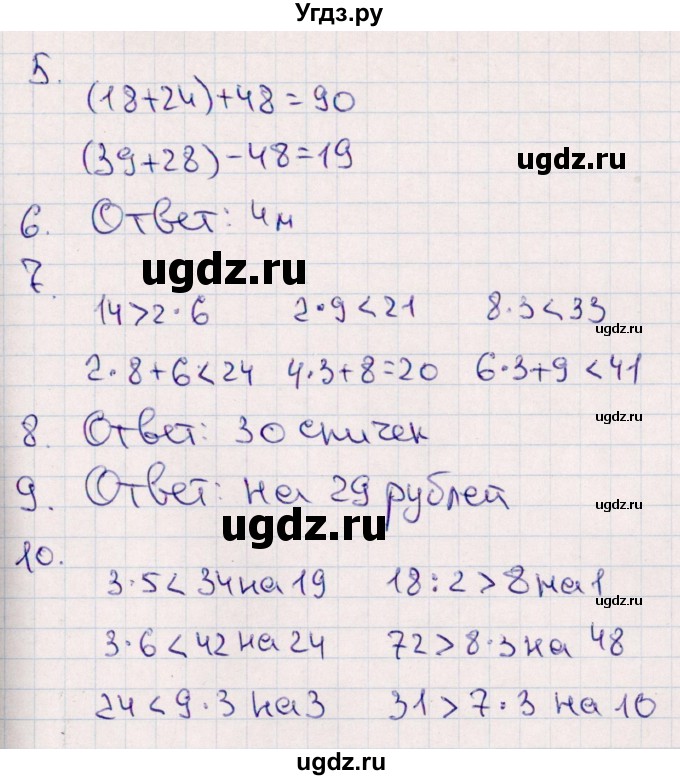 Угдз.ру
5.
(18+24)+48=90
(39+28)-48=19
ugdz.ru
6. Ответ: 4м
7.
ugdz.ru
14>2·6 2·9<21 8·3<33
ugdz.ru
2·8+6<24 4·3+8=20 6·3+9<41
8. Ответ: 30 спичек
ugdz.ru
9. Ответ: на 29 рублей
ugdz.ru
ugdz.ru
10.
3·5<34 на 19 18:2>8 на 1
ugdz.ru
3·6<42 на 24 72>8·3 на 48
24<9·3 на 3 31>7·3 на 10
ugdz.ru
ugdz.ru